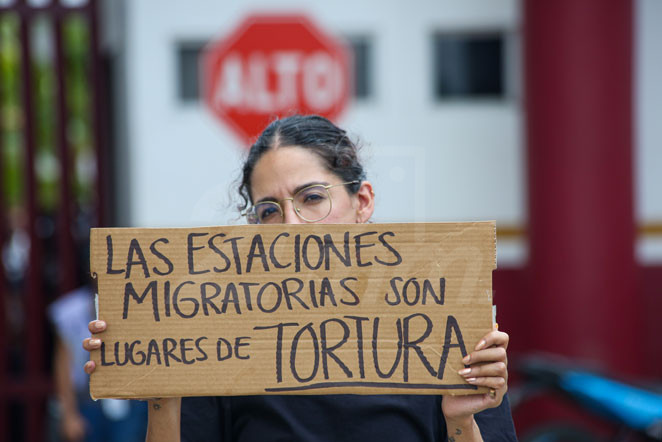 ALTO
LAS ESTACIONES
MIGRATORIAS SON
LUGARES DE TORTURA